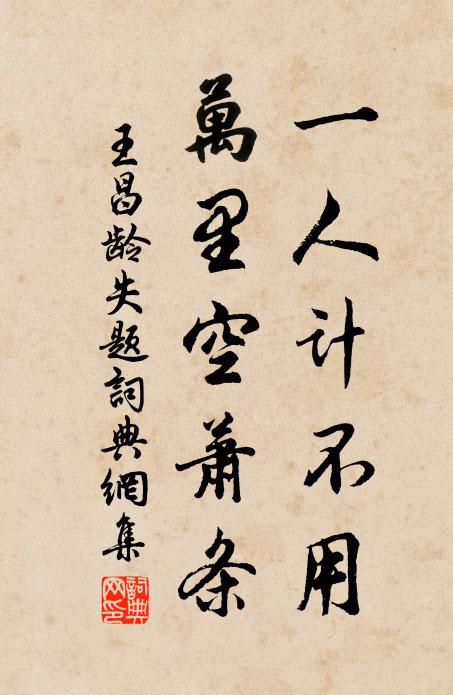 一人计不用
萬里空蕭条
王昌龄失题詞典網集
詞典网印